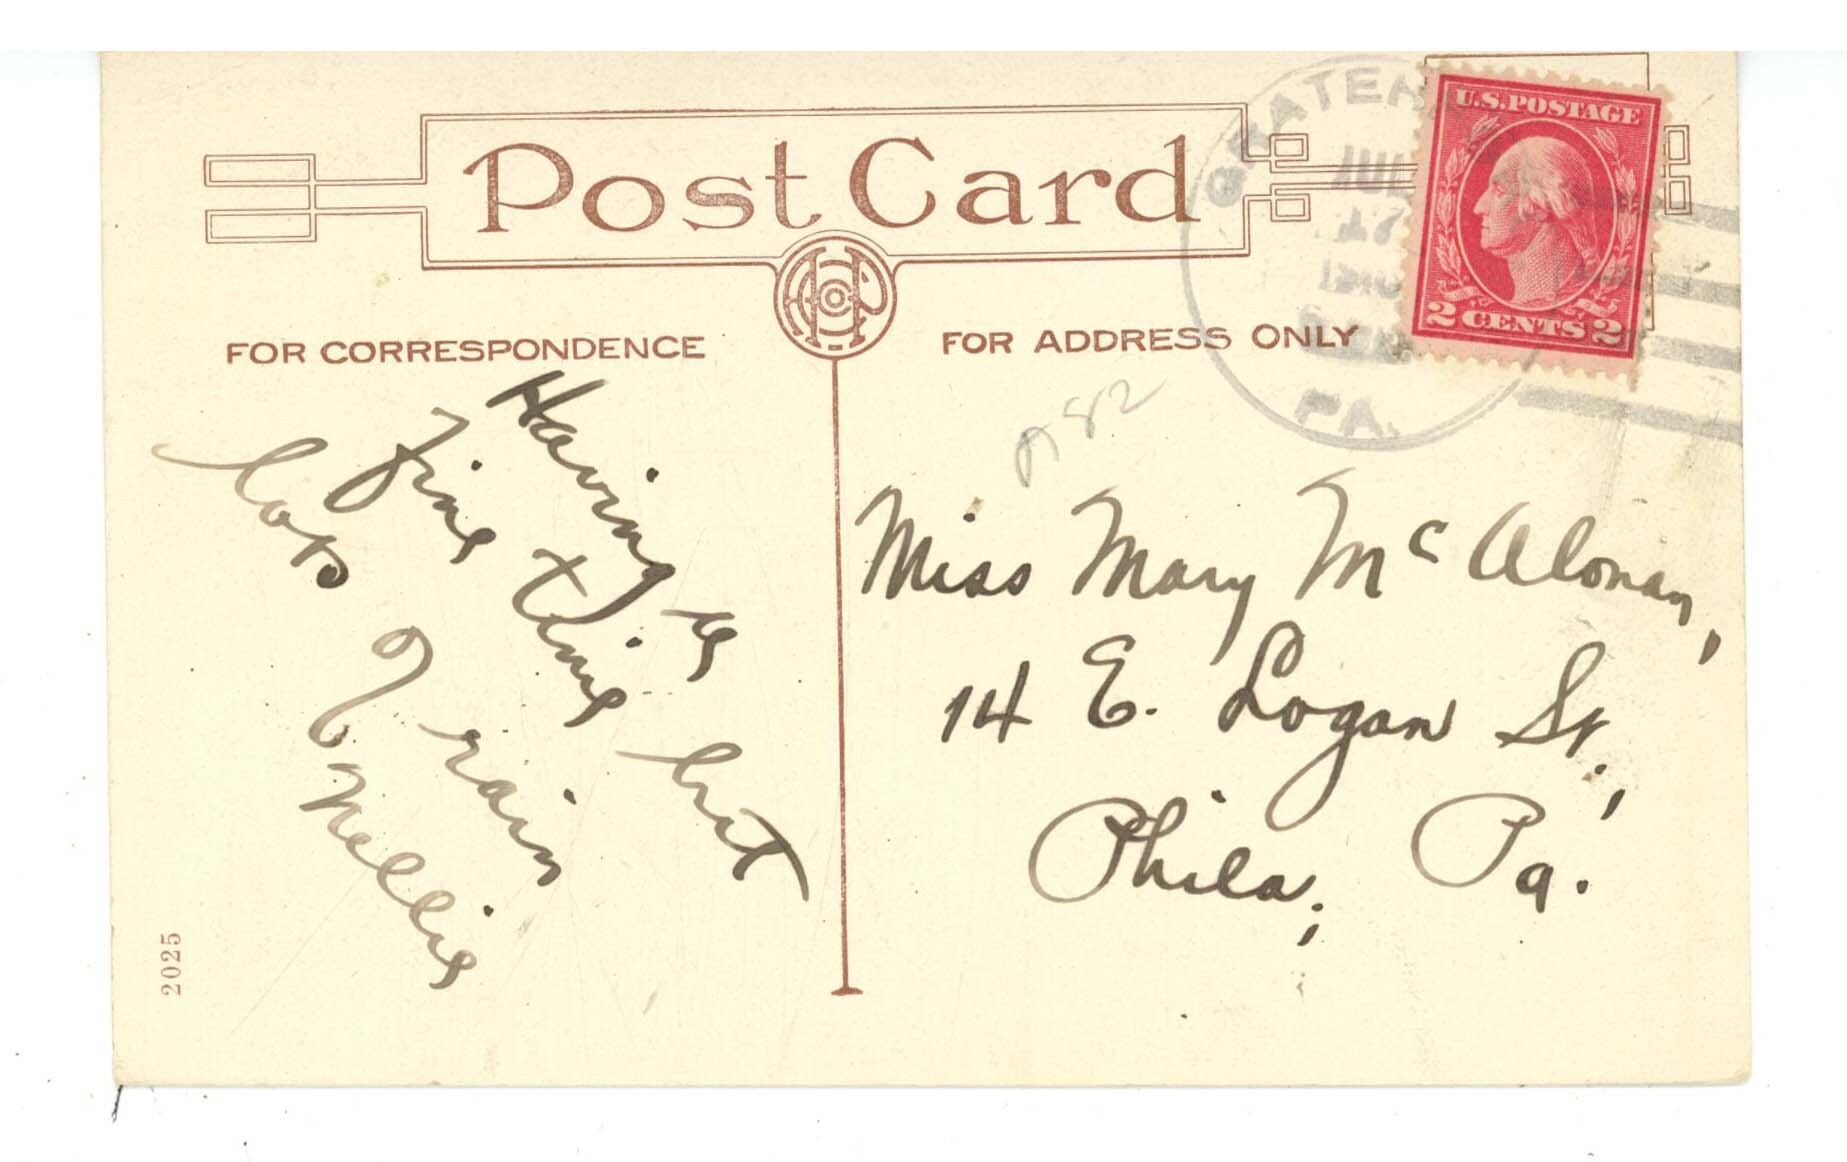 Post Card
FOR CORRESPONDENCE
FOR ADDRESS ONLY
U.S. POSTAGE
2 CENTS 2
JUL
17
PA.
982
Having a
fine time but
lots of rain
Nellie
Miss Mary Mc Aloman,
14 E. Logan St.,
Phila, Pa.
2025